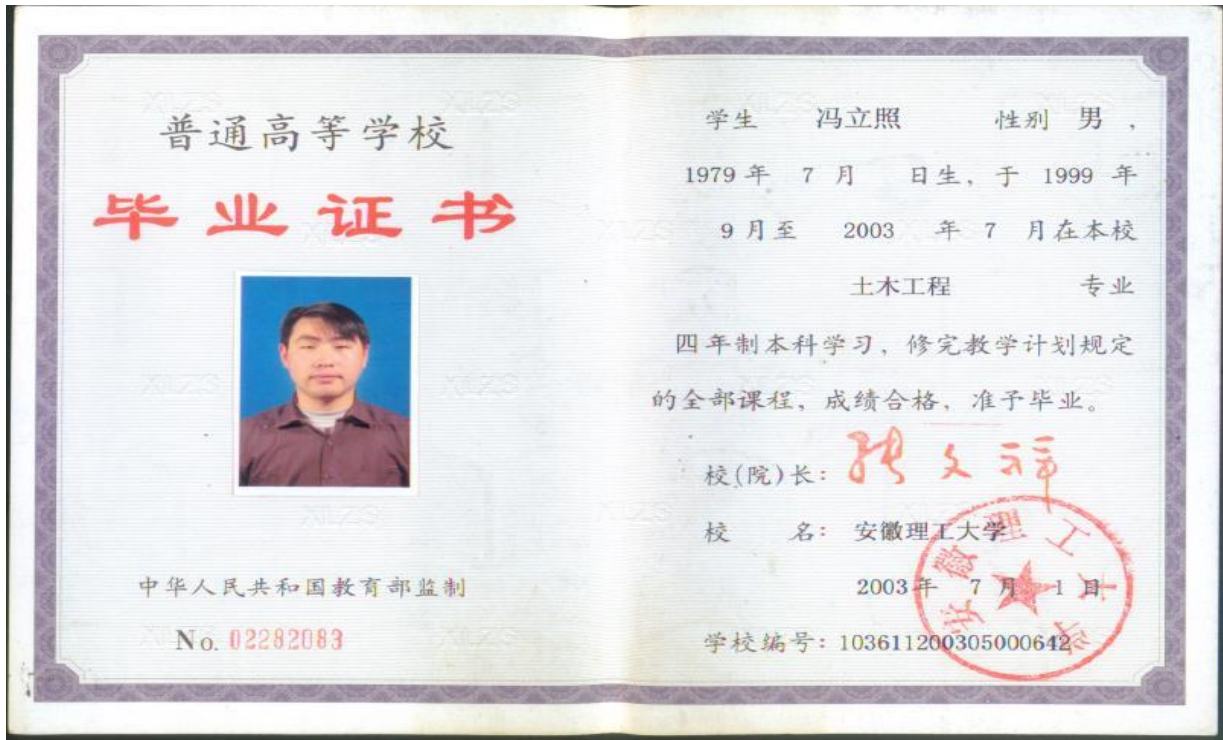 普通高等学校
毕业证书
中华人民共和国教育部监制
No. 02282083
学生 冯立照 性别 男，
1979 年 7 月 日生，于 1999 年
9 月至 2003 年 7 月在本校
土木工程 专业
四年制本科学习，修完教学计划规定
的全部课程，成绩合格，准予毕业。
校(院)长：张文祥
校 名：安徽理工大学
2003 年 7 月 1 日
学校编号：103611200305000642
安徽理工大学